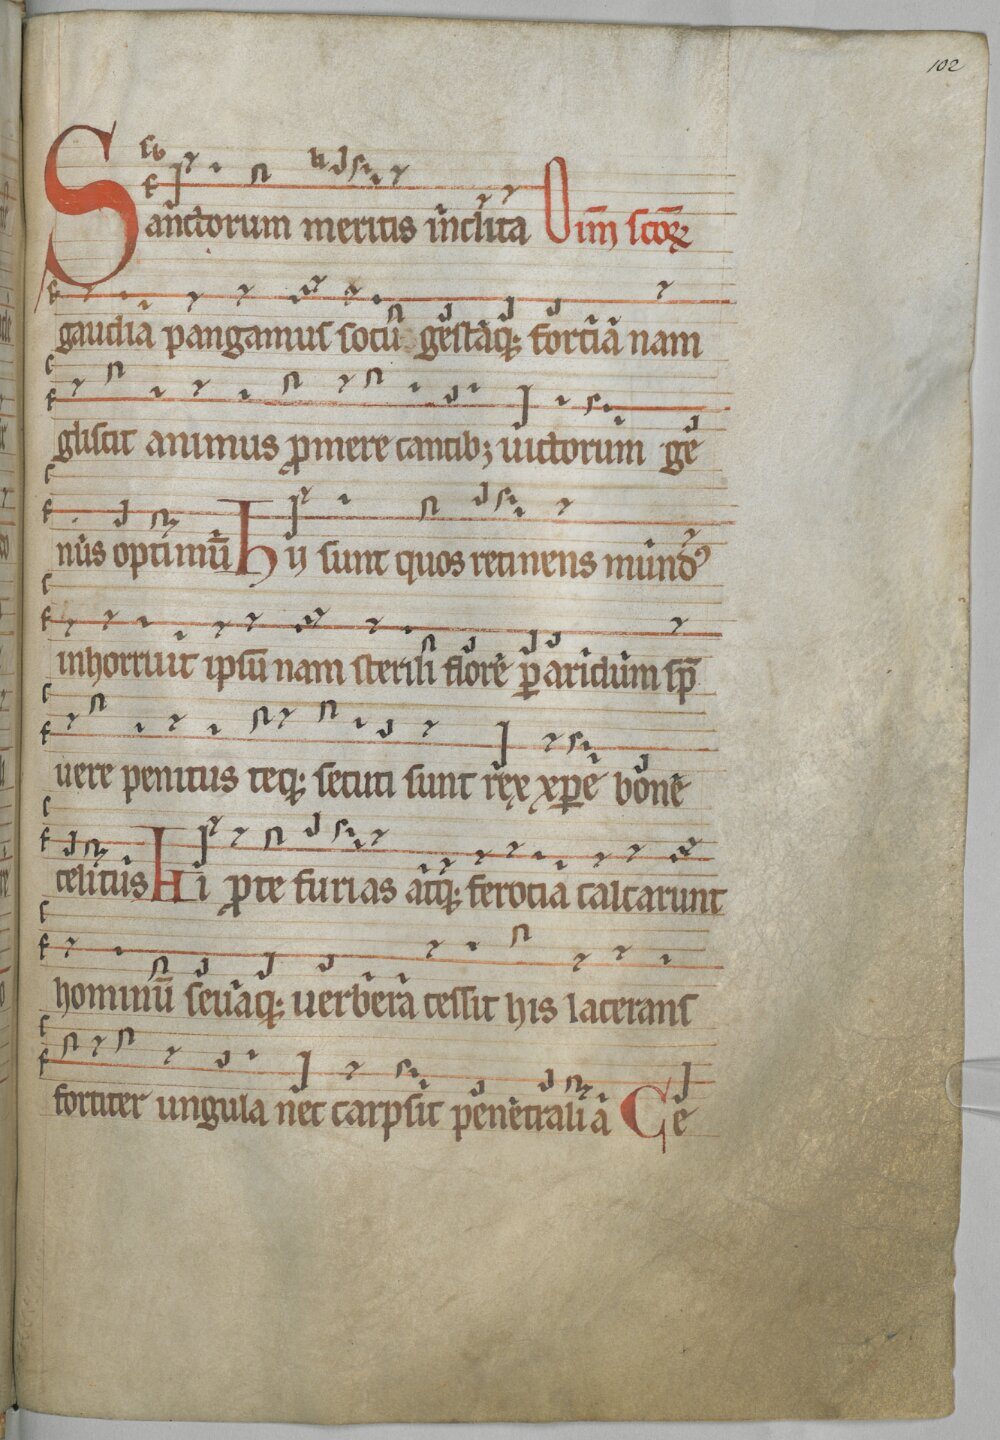 102
Sanctorum meritis inclita Oim̄ scōꝝ
gaudia pangamus socii gestaqꝫ fortia nam
gliscit animus ꝓmere cantibꝫ uictorum ge
nus optimū Hij sunt quos retinens mundꝰ
inhorruit ipsū nam sterili flore ꝑ aridum sp̄
uere penitus teqꝫ secuti sunt rex xp̄e bone
celitus Hi ꝓ te furias atqꝫ ferocia calcarunt
hominū seuaqꝫ uerbera cessit his lacerans
fortiter ungula nec carpsit penetralia Ce